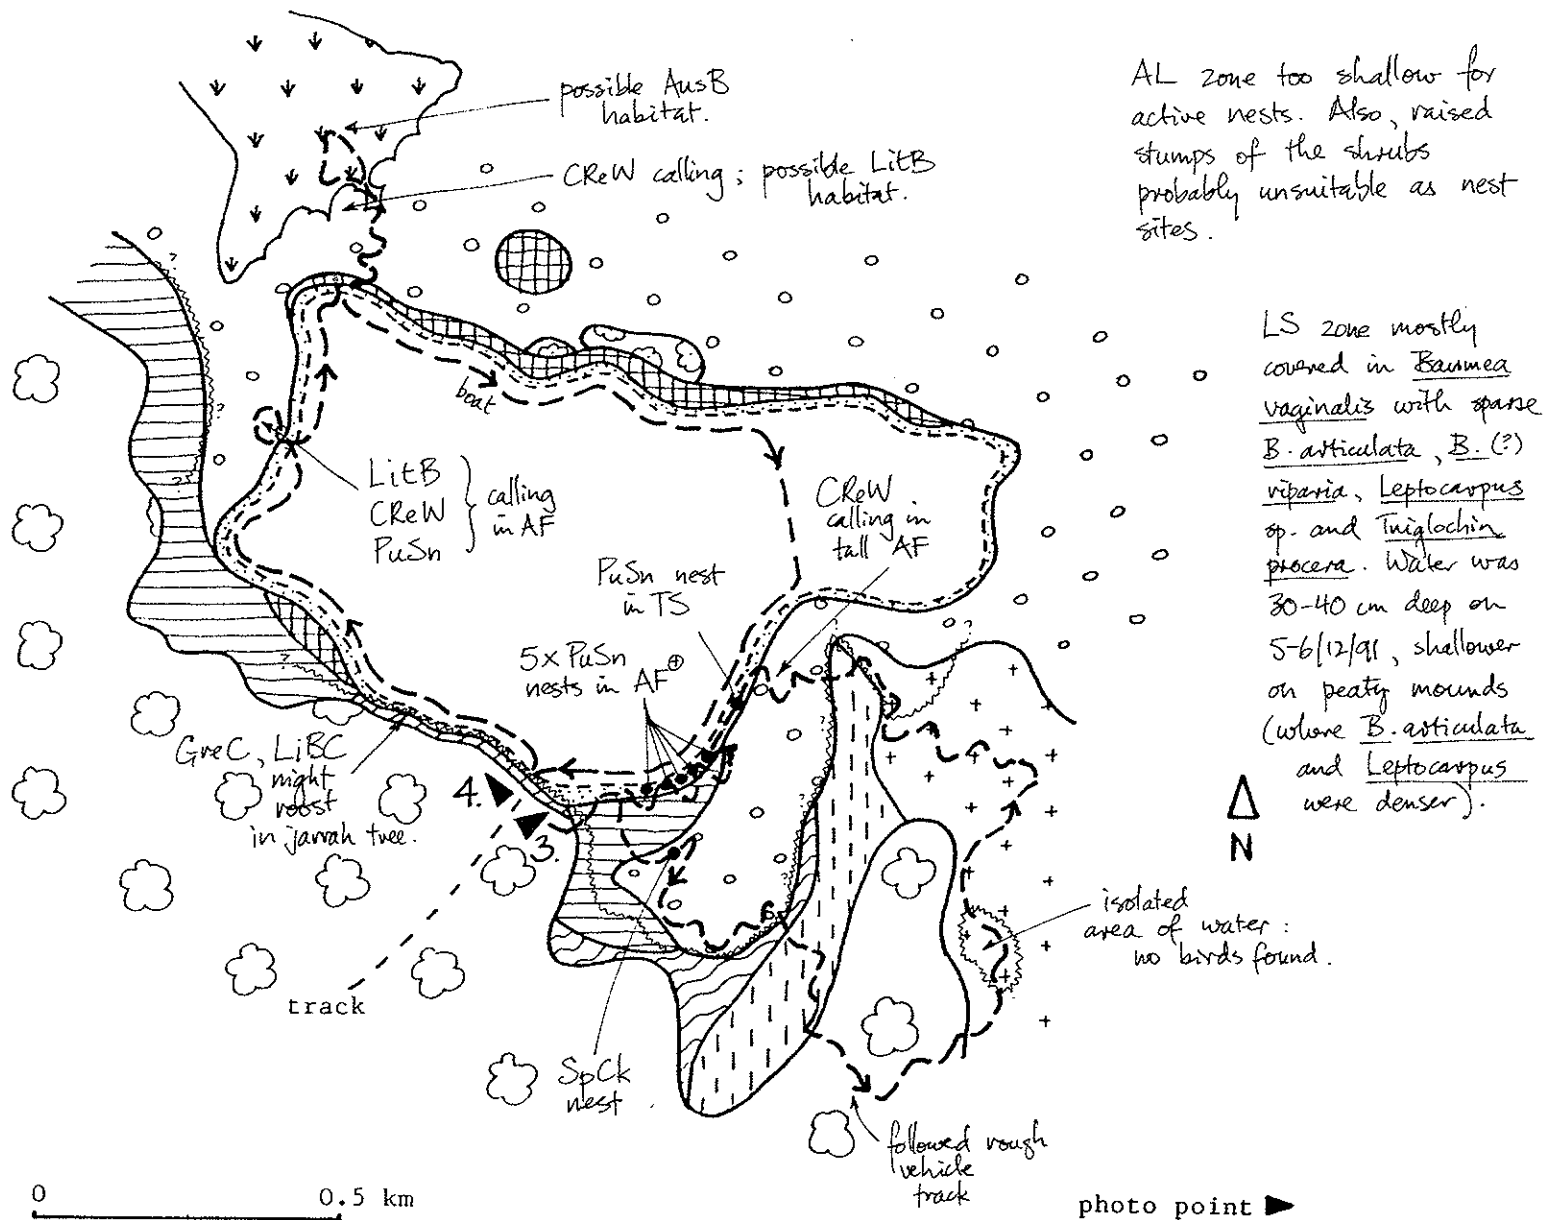 possible AusB
habitat.
CReW calling ; possible LitB
habitat.
AL zone too shallow for
active nests. Also, raised
stumps of the shrubs
probably unsuitable as nest
sites.
LS zone mostly
covered in Baumea
vaginalis with sparse
B. articulata, B. (?)
riparia, Leptocarpus
sp. and Triglochin
procera. Water was
30-40 cm deep on
5-6/12/91, shallower
on peaty mounds
(where B. articulata
and Leptocarpus
were denser).
?
?
?
boat
LitB
CReW
PuSn
calling
in AF
CReW
calling in
tall AF
PuSn nest
in TS
5x PuSn
nests in AF⊕
?
?
?
GreC, LiBC
night
roost
in jarrah tree.
4.
3.
N
isolated
area of water :
no birds found.
track
SpCk
nest.
followed rough
vehicle
track
0 0.5 km
photo point